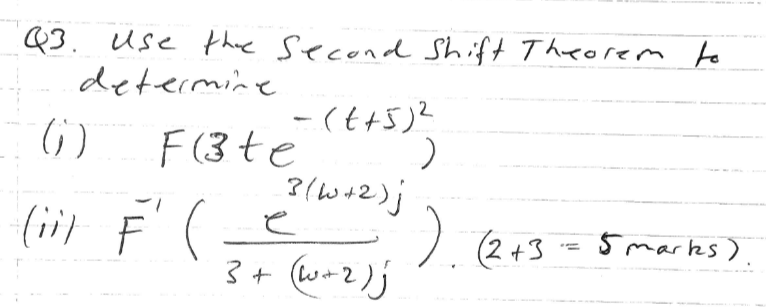 Q3. Use the Second Shift Theorem to
determine
(i) F(3te^{-(t+5)^2})
(ii) F^{-1}( \frac{e^{3(w+2)j}}{3+(w+2)j} ). (2+3 = 5 marks).